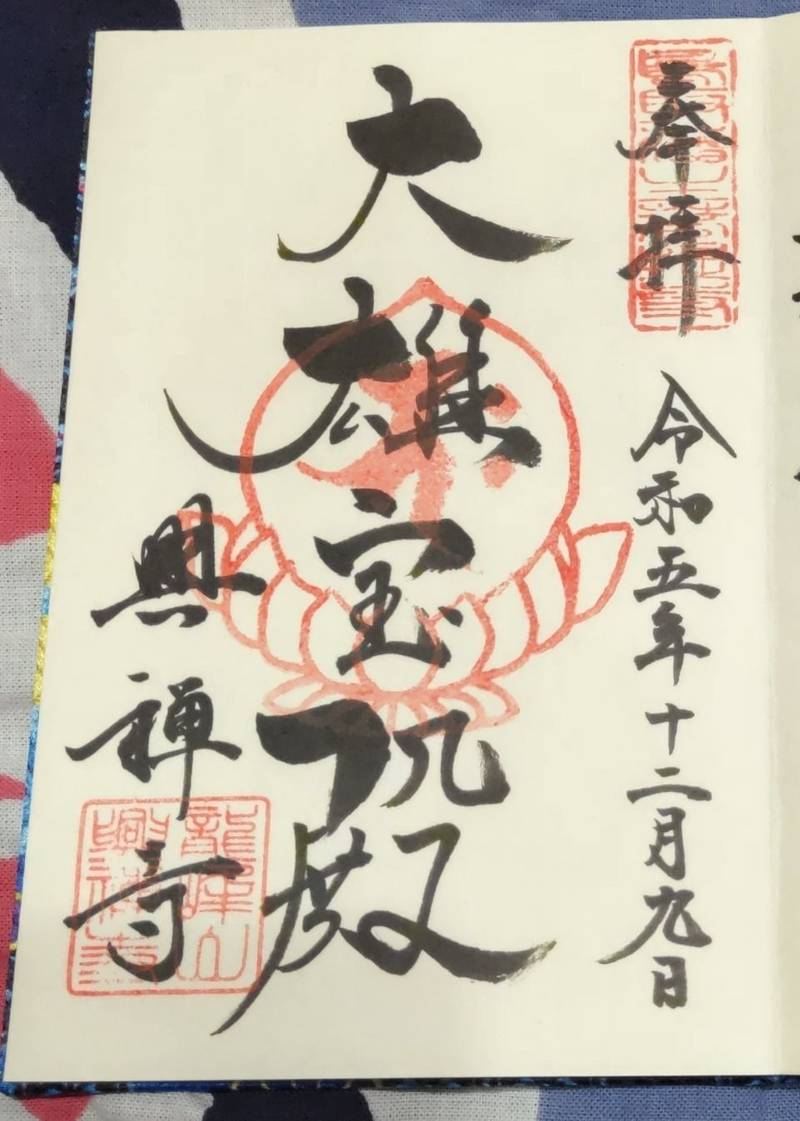 奉拝
令和五年十二月九日
大雄宝殿
興禅寺
龍峰山
興禅寺